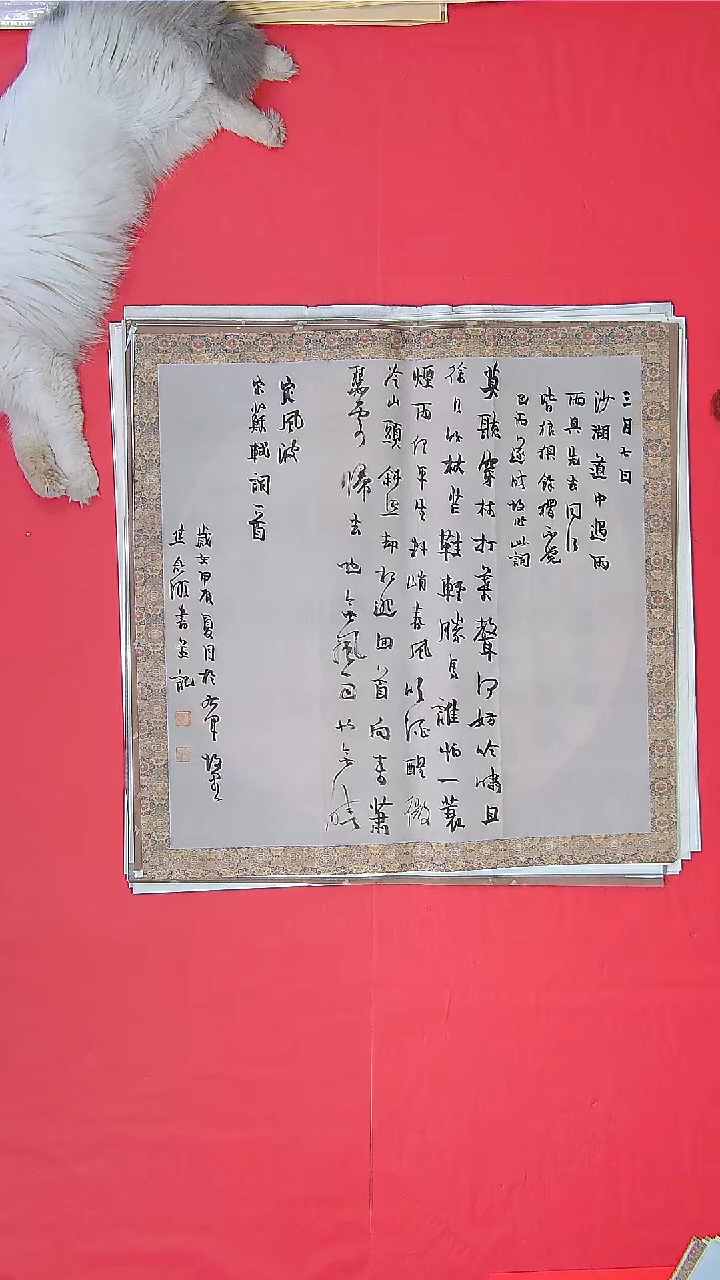 三月七日
沙湖道中遇雨
雨具先去同行
皆狼狽餘獨不覺
已而遂晴故作此詞
莫聽穿林打葉聲何妨吟嘯且
徐行竹杖芒鞋輕勝馬誰怕一蓑
煙雨任平生料峭春風吹酒醒微
冷山頭斜照却相迎回首向來蕭
瑟處歸去也無風雨也無晴
定風波
宋蘇軾詞一首
歲次甲辰夏月於
書並記